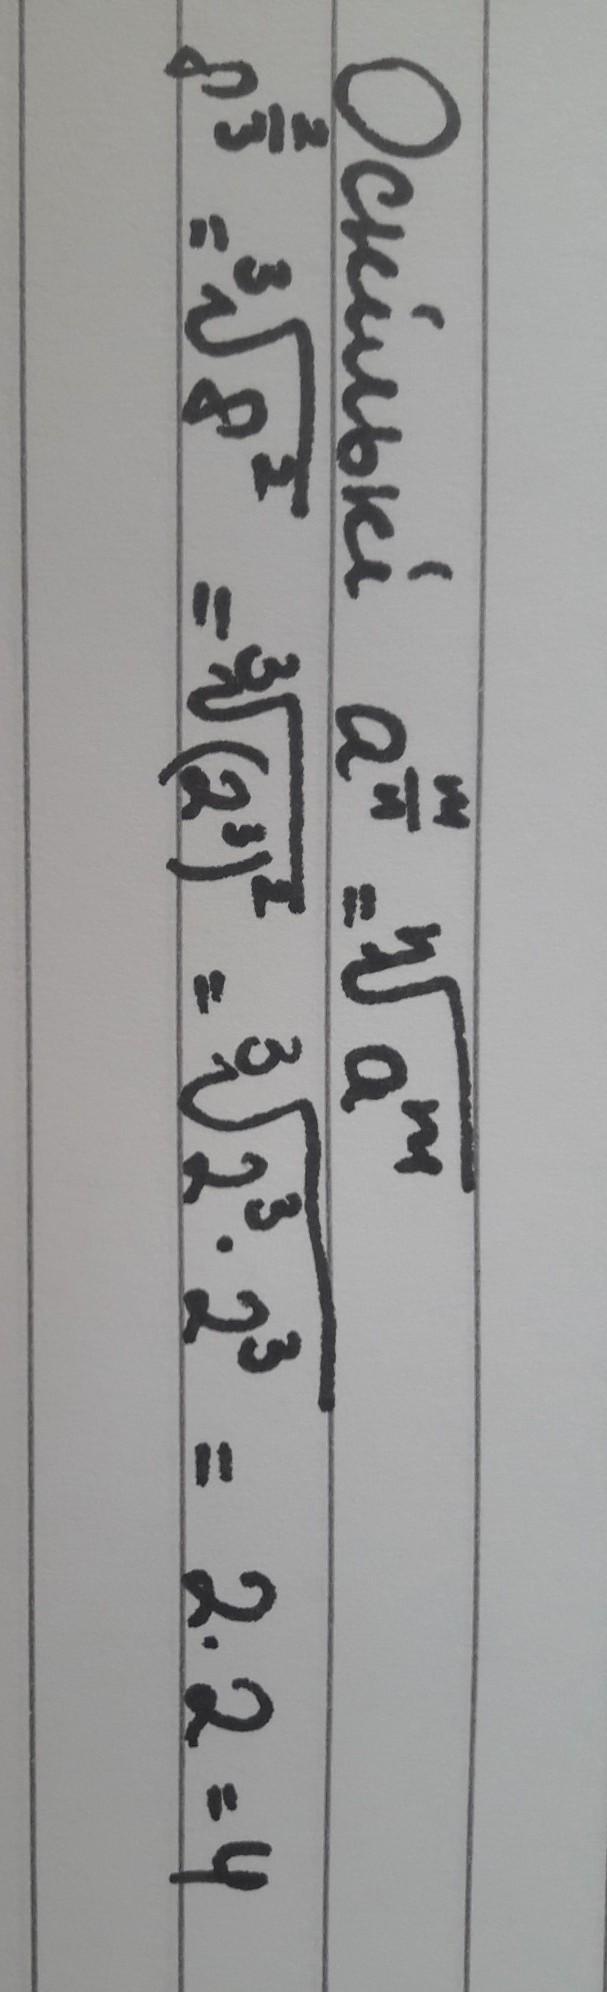 Оскількі a^{\frac{m}{n}} = \sqrt[n]{a^m}
8^{\frac{2}{3}} = \sqrt[3]{8^2} = \sqrt[3]{(2^3)^2} = \sqrt[3]{2^3 \cdot 2^3} = 2 \cdot 2 = 4